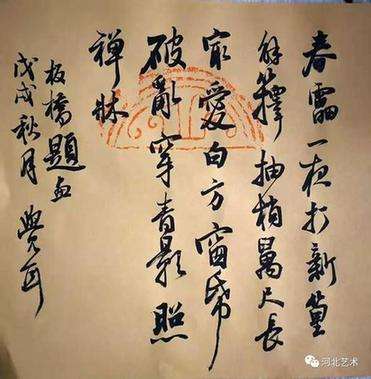 春雷一夜打新篁
解籜抽梢萬尺長
㝡愛白方窗帋
破亂穿青影照
禅牀
板橋題
戊戌秋月
河北艺术